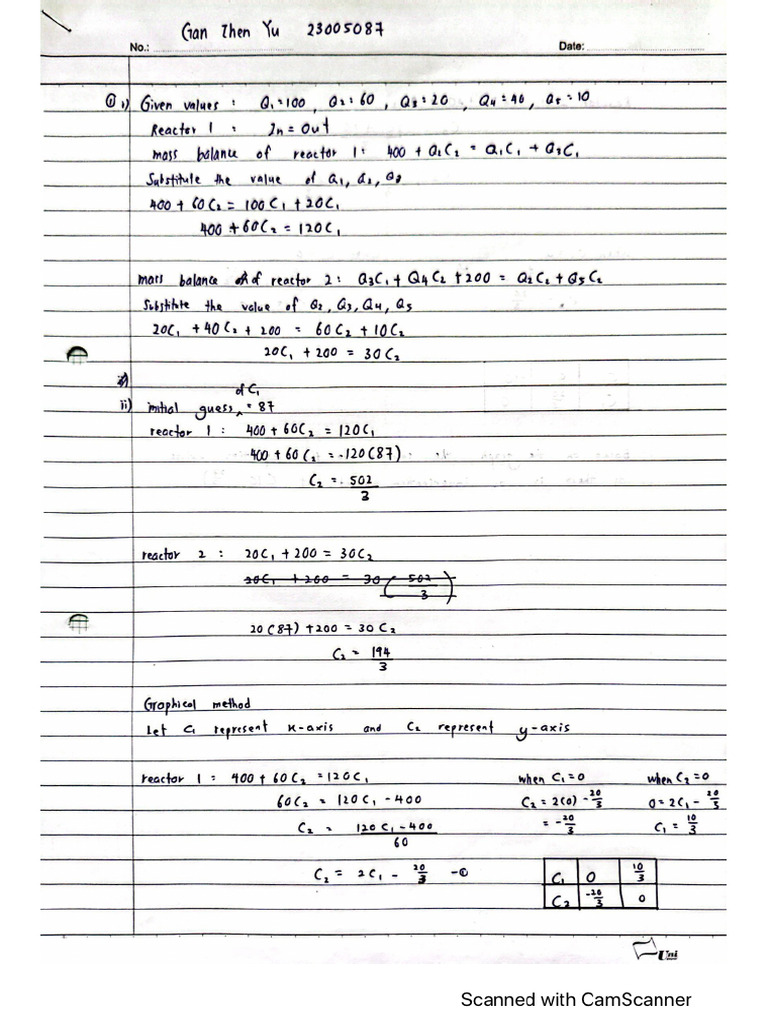 Gan Zhen Yu 23005087
No.: Date:
① i) Given values : Q₁=100 , Q₂=60 , Q₃=20 , Q₄=40 , Q₅=10
Reactor 1 : In = Out
mass balance of reactor 1: 400 + Q₂C₂ = Q₁C₁ + Q₃C₁
Substitute the value of Q₁, Q₂, Q₃
400 + 60C₂ = 100C₁ + 20C₁
400 + 60C₂ = 120C₁
mass balance of reactor 2: Q₃C₁ + Q₄C₂ + 200 = Q₂C₂ + Q₅C₂
Substitute the value of Q₂, Q₃, Q₄, Q₅
20C₁ + 40C₂ + 200 = 60C₂ + 10C₂
20C₁ + 200 = 30C₂
ii) initial guess of C₁ = 87
reactor 1 : 400 + 60C₂ = 120C₁
400 + 60C₂ = 120(87)
C₂ = 502/3
reactor 2 : 20C₁ + 200 = 30C₂
20C₁ + 200 = 30(502/3)
20(87) + 200 = 30C₂
C₂ = 194/3
Graphical method
Let C₁ represent x-axis and C₂ represent y-axis
reactor 1 : 400 + 60C₂ = 120C₁ when C₁=0 when C₂=0
60C₂ = 120C₁ - 400 C₂ = 2(0) - 20/3 0 = 2C₁ - 20/3
C₂ = 120C₁ - 400/60 = -20/3 C₁ = 10/3
C₂ = 2C₁ - 20/3 -① C₁ 0 10/3
C₂ -20/3 0
Uni
Scanned with CamScanner